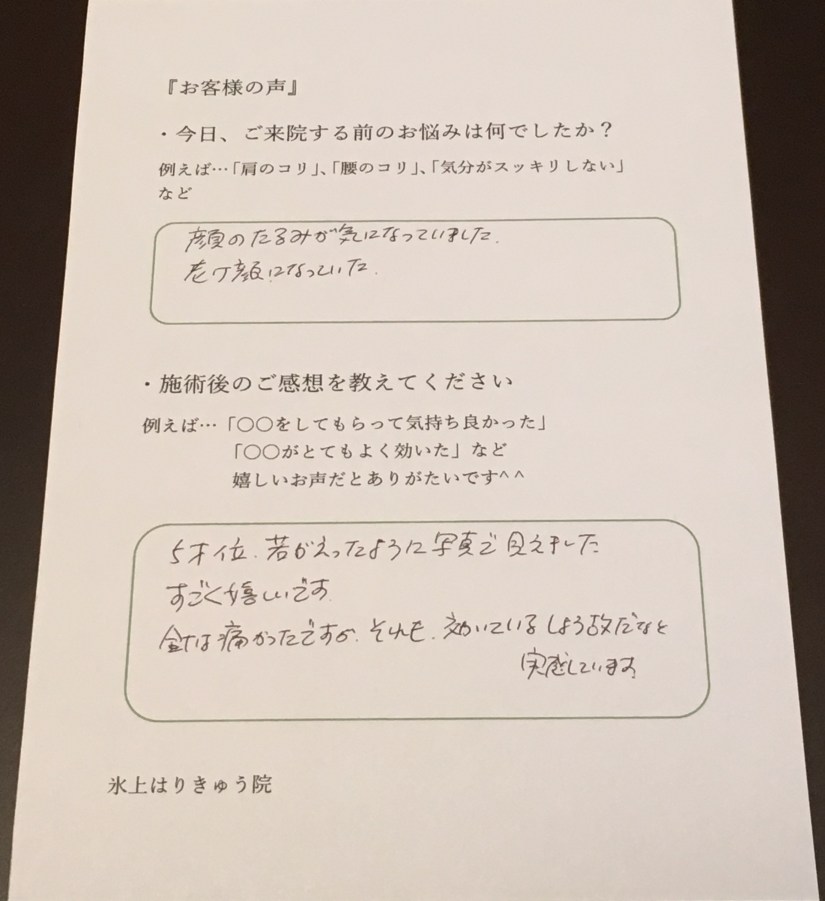 『お客様の声』
・今日、ご来院する前のお悩みは何でしたか？
例えば…「肩のコリ」、「腰のコリ」、「気分がスッキリしない」
など
顔のたるみが気になっていました.
老け顔になっていた.
・施術後のご感想を教えてください
例えば…「〇〇をしてもらって気持ち良かった」
「〇〇がとてもよく効いた」など
嬉しいお声だとありがたいです^ ^
5才位、若がえったように写真で見えました
すごく嬉しいです
針は痛かったですが、それも、効いているしょう故だなと
実感しています
氷上はりきゅう院